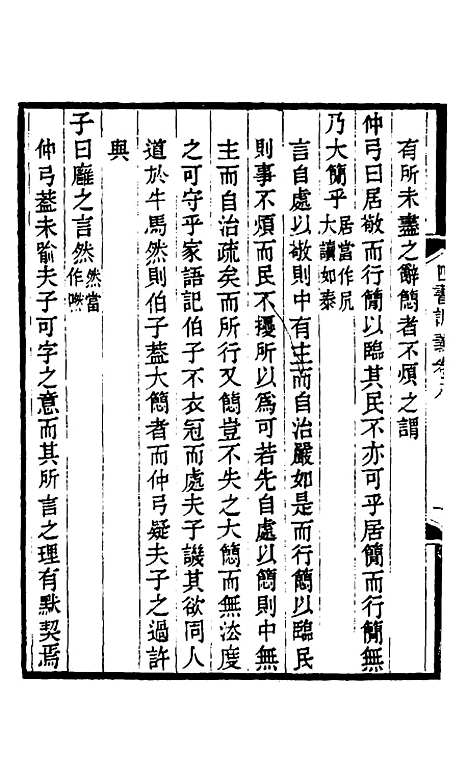 有所未盡之辭簡者不煩之謂
仲弓曰居敬而行簡以臨其民不亦可乎居簡而行簡無
乃大簡乎居當作凥大讀如泰
言自處以敬則中有主而自治嚴如是而行簡以臨民
則事不煩而民不擾所以爲可若先自處以簡則中無
主而自治疏矣而所行又簡豈不失之大簡而無法度
之可守乎家語記伯子不衣冠而處夫子譏其欲同人
道於牛馬然則伯子蓋大簡者而仲弓疑夫子之過許
與
子曰雍之言然然當作嘫
仲弓蓋未喻夫子可字之意而其所言之理有默契焉
四書訓義卷八